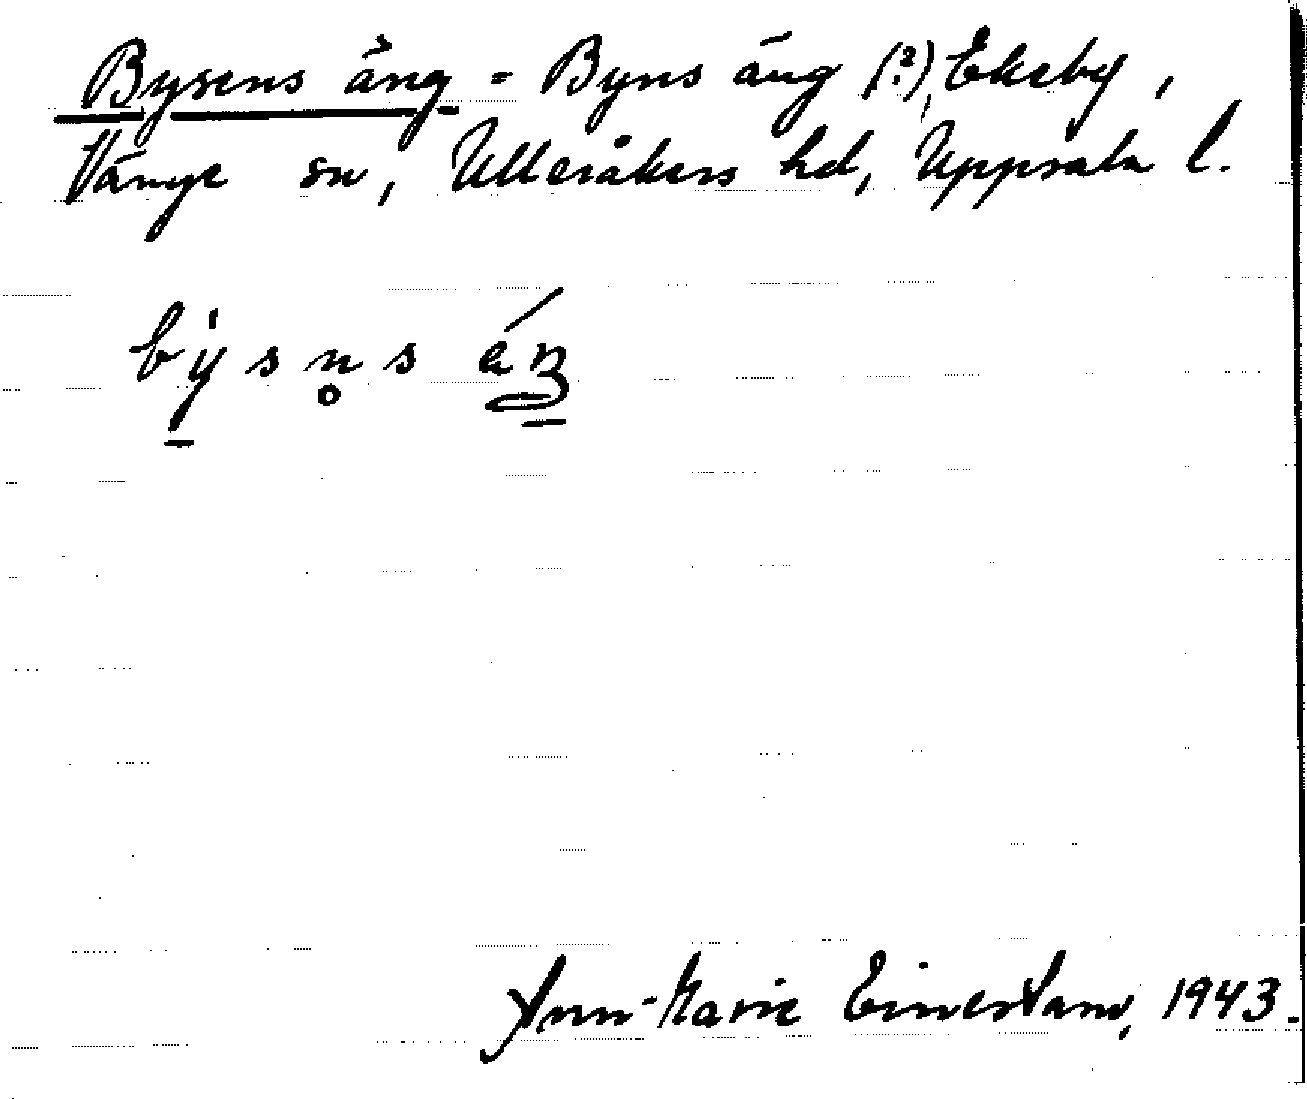 Bysens äng = Byns äng (?), Ekeby,
Vänge sn, Ulleråkers hd, Uppsala l.
Ann-Marie 1943.